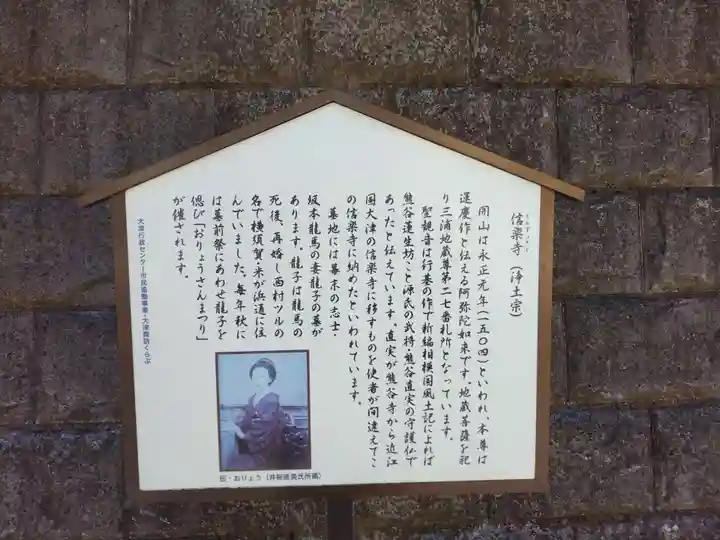 信楽寺(浄土宗)
しんぎょうじ
開山は永正元年(一五〇四)といわれ、本尊は
運慶作と伝える阿弥陀如来です。地蔵菩薩を祀
り三浦地蔵尊第二七番札所となっています。
聖観音は行基の作で新編相模国風土記によれば
熊谷蓮生坊、こと源氏の武将・熊谷直実の守護仏で
あったと伝えています。直実が熊谷寺から近江
国大津の信楽寺に移すものを使者が間違えてこ
の信楽寺に納めたといわれています。
墓地には幕末の志士・
坂本龍馬の妻龍子の墓が
あります。龍子は龍馬の
死後、再婚し西村ツルの
名で横須賀・米が浜通に住
んでいました。毎年秋に
は墓前祭にあわせ龍子を
偲び「おりょうさんまつり」
が催されます。
大津行政センター市民協働事業・大津探訪くらぶ
伝・おりょう(井桜直美氏所蔵)